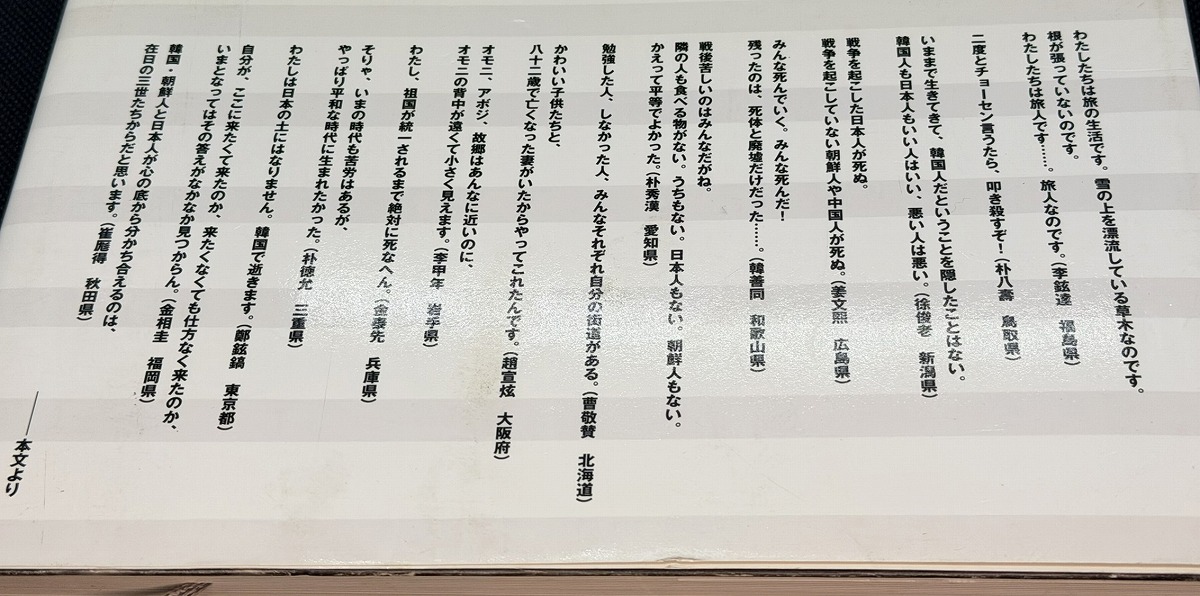 わたしたちは旅の生活です。雪の上を漂流している草木なのです。
根が張っていないのです。
わたしたちは旅人です……。旅人なのです。（李鉉達　福島県）
二度とチョーセン言うたら、叩き殺すぞ！（朴八壽　鳥取県）
いままで生きてきて、韓国人だということを隠したことはない。
韓国人も日本人もいい人はいい、悪い人は悪い。（徐俊老　新潟県）
戦争を起こした日本人が死ぬ。
戦争を起こしていない朝鮮人や中国人が死ぬ。（姜文熙　広島県）
みんな死んでいく。みんな死んだ！
残ったのは、死体と廃墟だけだった……。（韓善同　和歌山県）
戦後苦しいのはみんなだがね。
隣の人も食べる物がない。うちもない。日本人もない。朝鮮人もない。
かえって平等でよかった。（朴秀漢　愛知県）
勉強した人、しなかった人、みんなそれぞれ自分の街道がある。（曹敬賛　北海道）
かわいい子供たちと、
八十二歳で亡くなった妻がいたからやってこれたんです。（趙宣炫　大阪府）
オモニ、アボジ、故郷はあんなに近いのに、
オモニの背中が遠くて小さく見えます。（李甲年　岩手県）
わたし、祖国が統一されるまで絶対に死なへん。（金泰先　兵庫県）
そりゃ、いまの時代も苦労はあるが、
やっぱり平和な時代に生まれたかった。（朴徳允　三重県）
わたしは日本の土にはなりません。韓国で逝きます。（鄭鉉鎬　東京都）
自分が、ここに来たくて来たのか、来たくなくても仕方なく来たのか、
いまとなってはその答えがなかなか見つからん。（金相圭　福岡県）
韓国・朝鮮人と日本人が心の底から分かち合えるのは、
在日の三世たちからだと思います。（崔得　秋田県）
――本文より